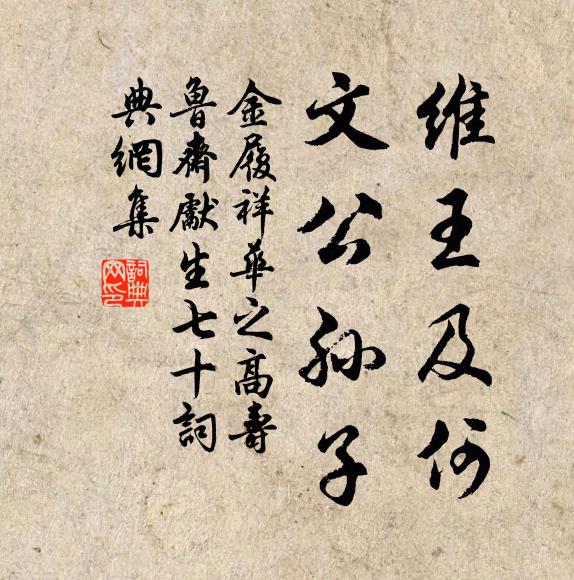 維王及何
文公孙子
金履祥華之高壽
魯齋獻生七十詞
典網集
詞典
网印